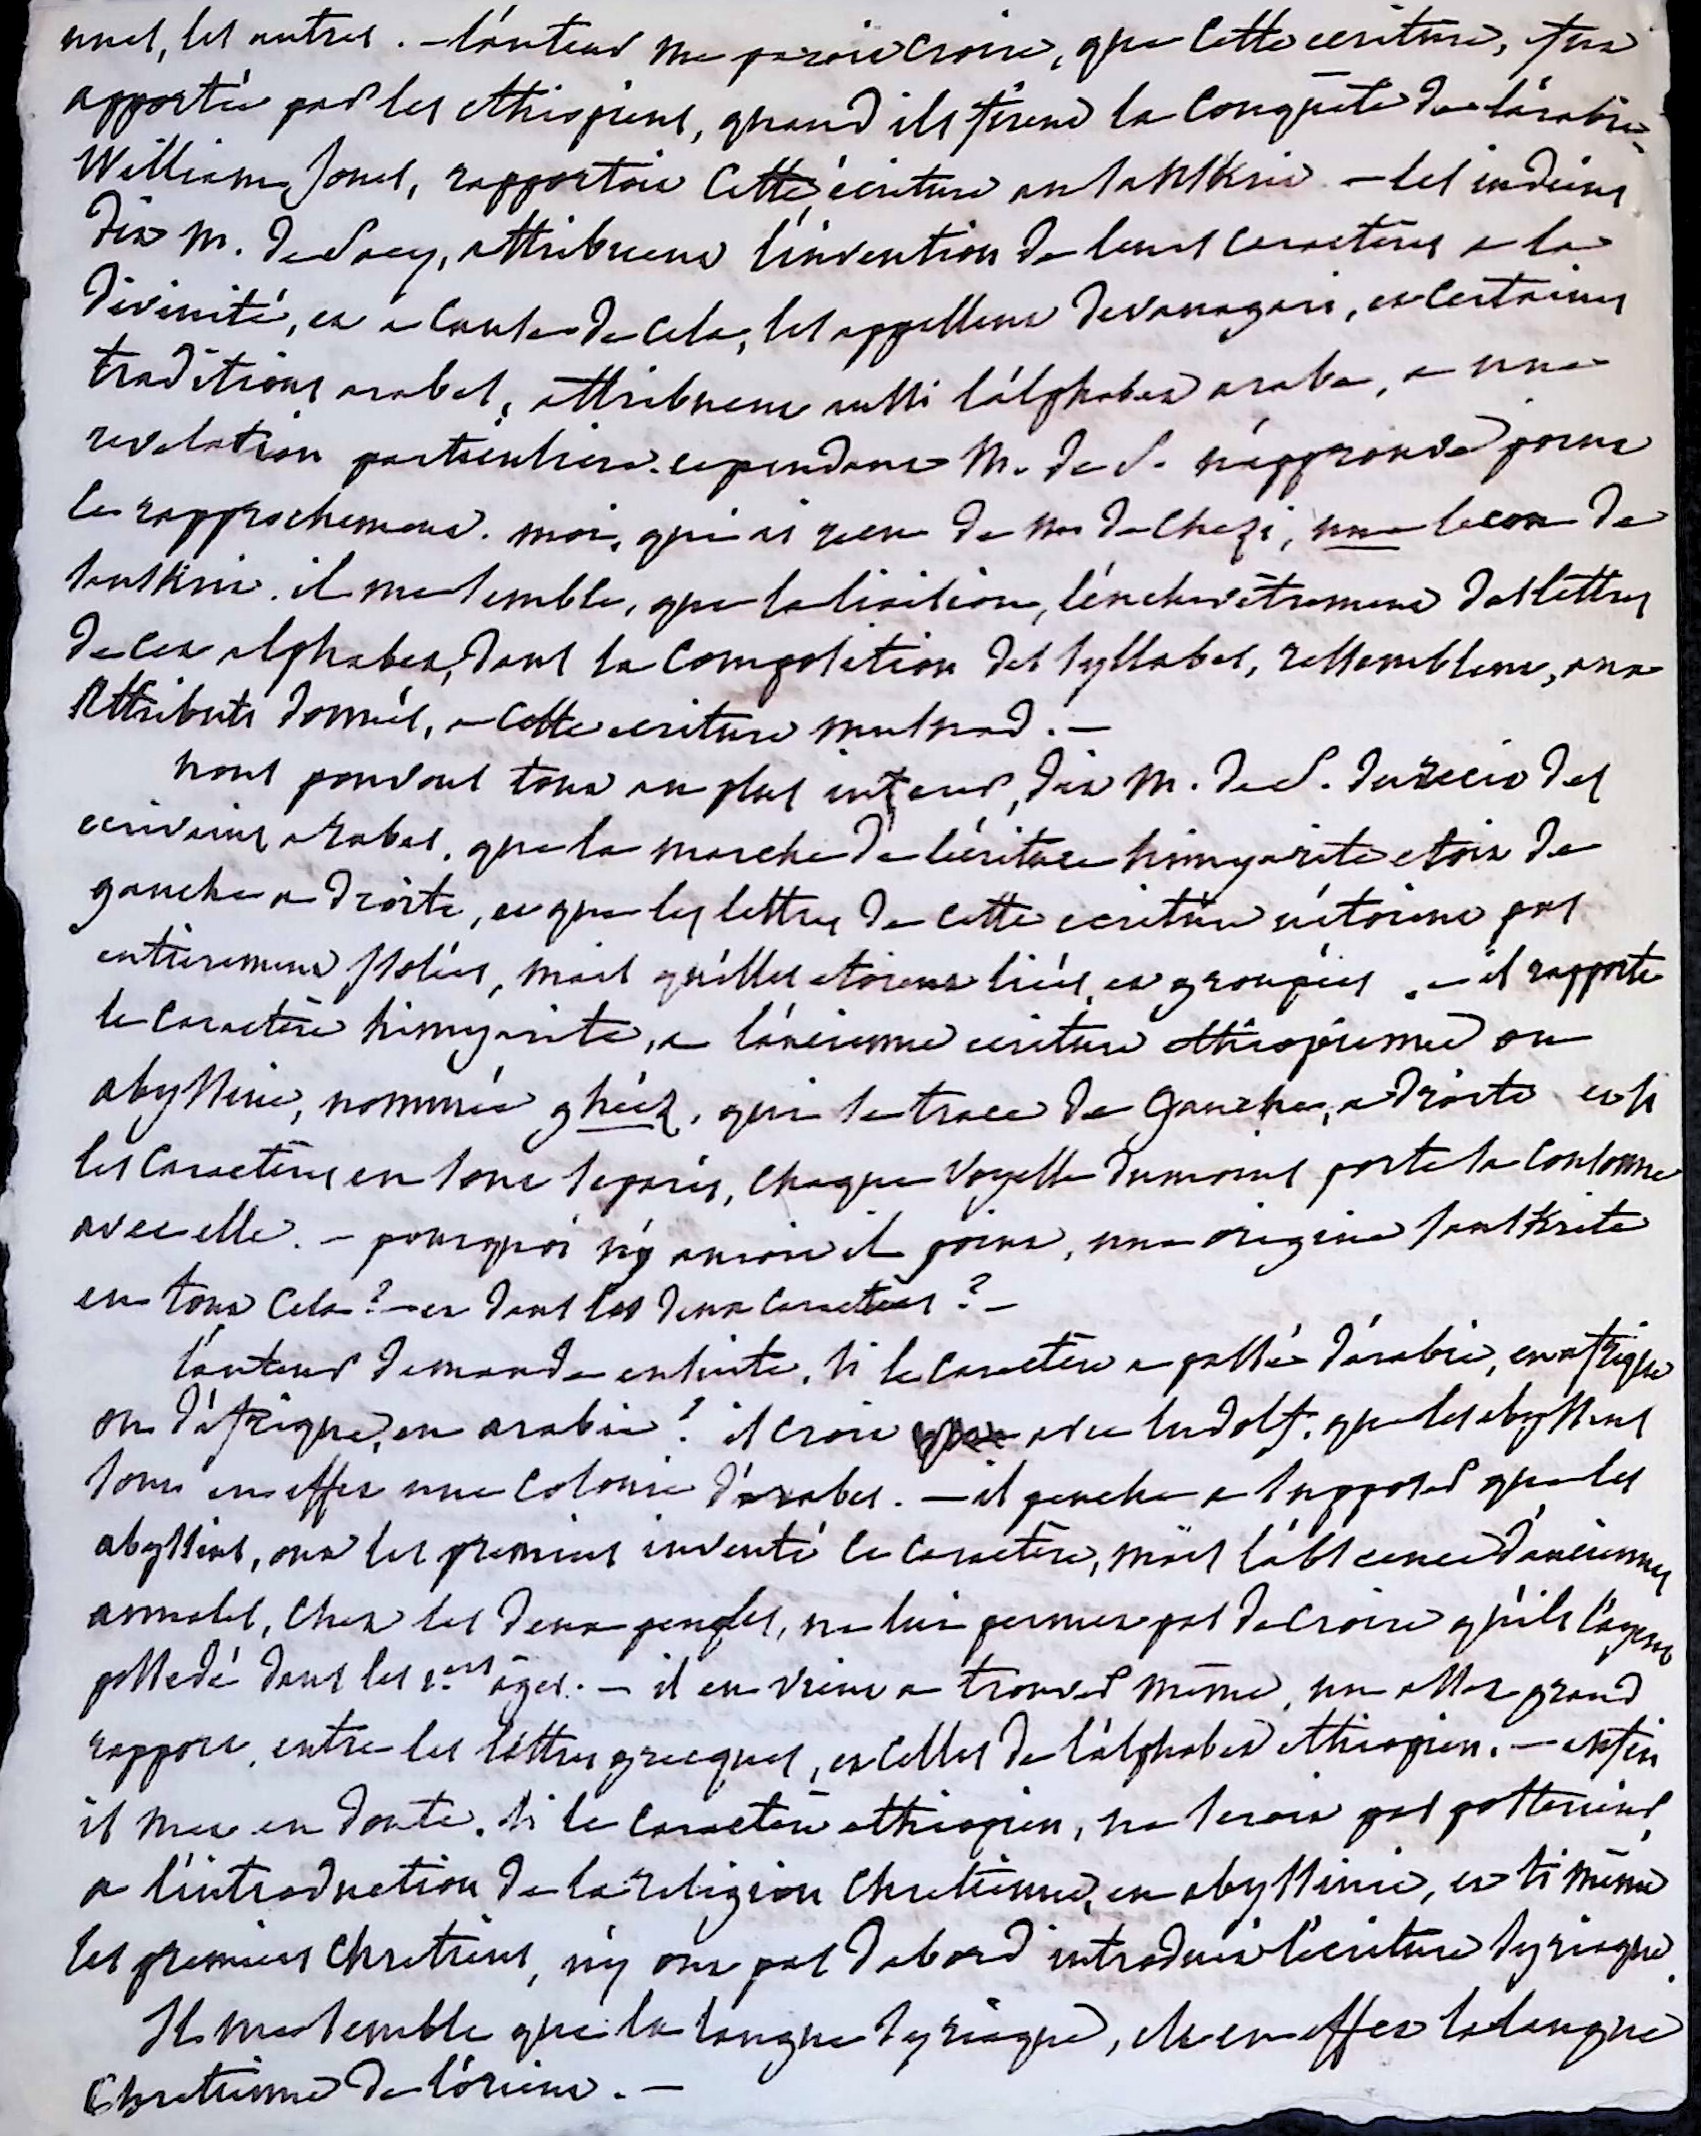 unes, les autres. — l'auteur me paroit croire, que cette ecriture, fut
apportée par les ethiopiens, quand ils firent la conquête de l'arabie.
William Jones, rapportoit cette écriture au sanskrit. — les indiens
dit M. de Sacy, attribuent l'invention de leurs caractères a la
divinité, et a cause de cela, les appellent devanagari, et certaines
traditions arabes, attribuent aussi l'alphabet arabe, a une
revelation particuliere. cependant M. de S. n'approuve point
ce rapprochement. moi, qui ai reçu de M. de Chezi, une lecon de
sanskrit. il me semble, que la liaison, l'enchevêtrement des lettres
de cet alphabet, dans la composition des syllabes, ressemblent, aux
attributs donnés, a cette ecriture musnad. —
nous pouvons tout au plus inferer, dit M. de S. du recit des
ecrivains arabes, que la marche de l'écriture himyarite etoit de
gauche a droite, et que les lettres de cette ecriture n'étoient pas
entierement isolées, mais qu'elles etoient liées, et groupées. — il rapporte
le caractère himyarite, a l'ancienne ecriture ethiopienne ou
abyssine, nommée ghéez, qui se trace de gauche, a droite et si
les caractères en sont separés, chaque voyelle du moins porte sa consonne
avec elle. — pourquoi n'y auroit il point, une origine sanskrite
en tout cela? — et dans les deux caracteres? —
l'auteur demande ensuite, si le caractère a passé d'arabie, en afrique
ou d'afrique, en arabie? il croit avec ludolf, que les abyssins
sont en effet une colonie d'arabes. — il penche a supposer que les
abyssins, ont les premiers inventé ce caractère, mais l'absence d'anciennes
annales, chez les deux peuples, ne lui permet pas de croire qu'ils l'ayent
possedé dans les 1.ers âges. — il en vient a trouver même, un assez grand
rapport, entre les lettres grecques, et celles de l'alphabet ethiopien. — enfin
il met en doute, si le caractère ethiopien, ne seroit pas posterieur,
a l'introduction de la religion chretienne, en abyssinie, et si même
les premiers chretiens, n'y ont pas d'abord introduit l'écriture syriaque.
Il me semble que la langue syriaque, est en effet la langue
chretienne de l'orient. —